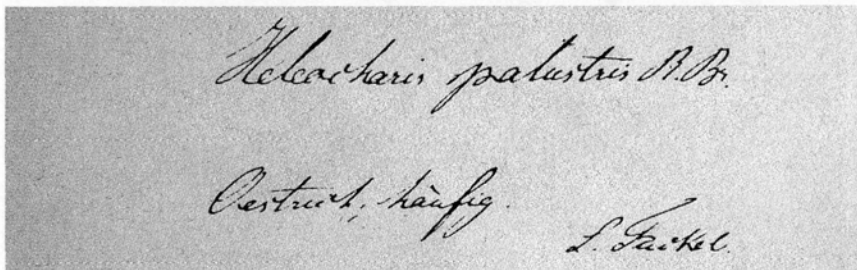 Heleocharis palustris R. Br.
Oestrich, häufig.
L. Fuckel.